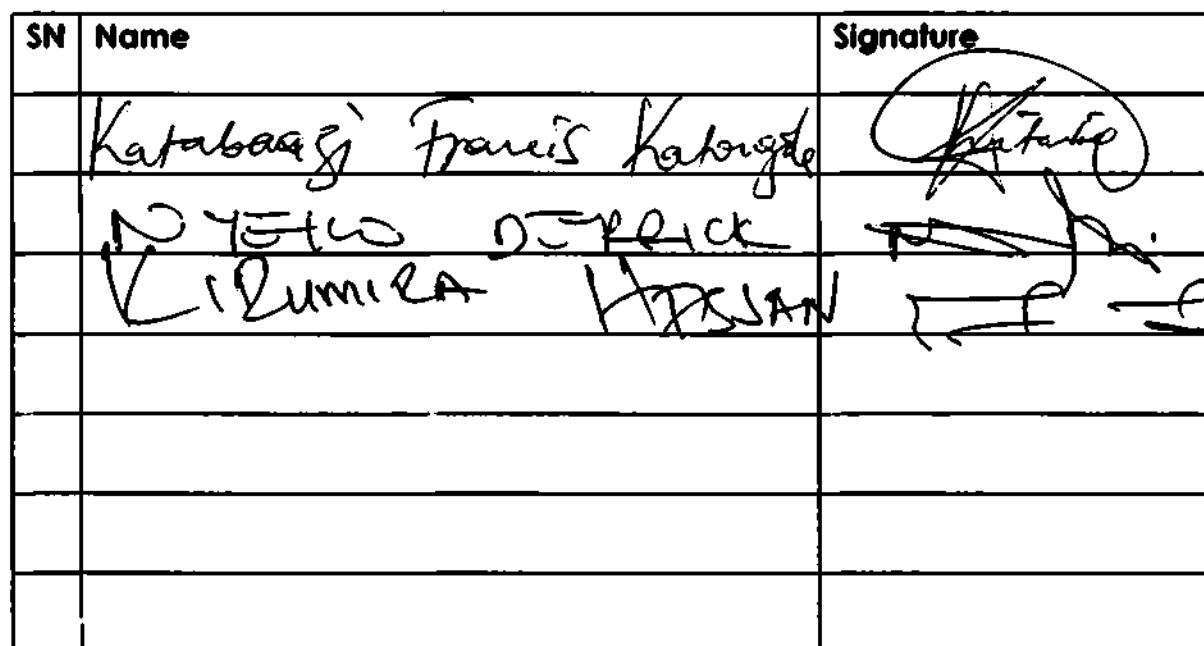 SN Name Signature
Katabaazi Francis Katongole
NYEKO DERRICK
KIRUMIRA HASSAN